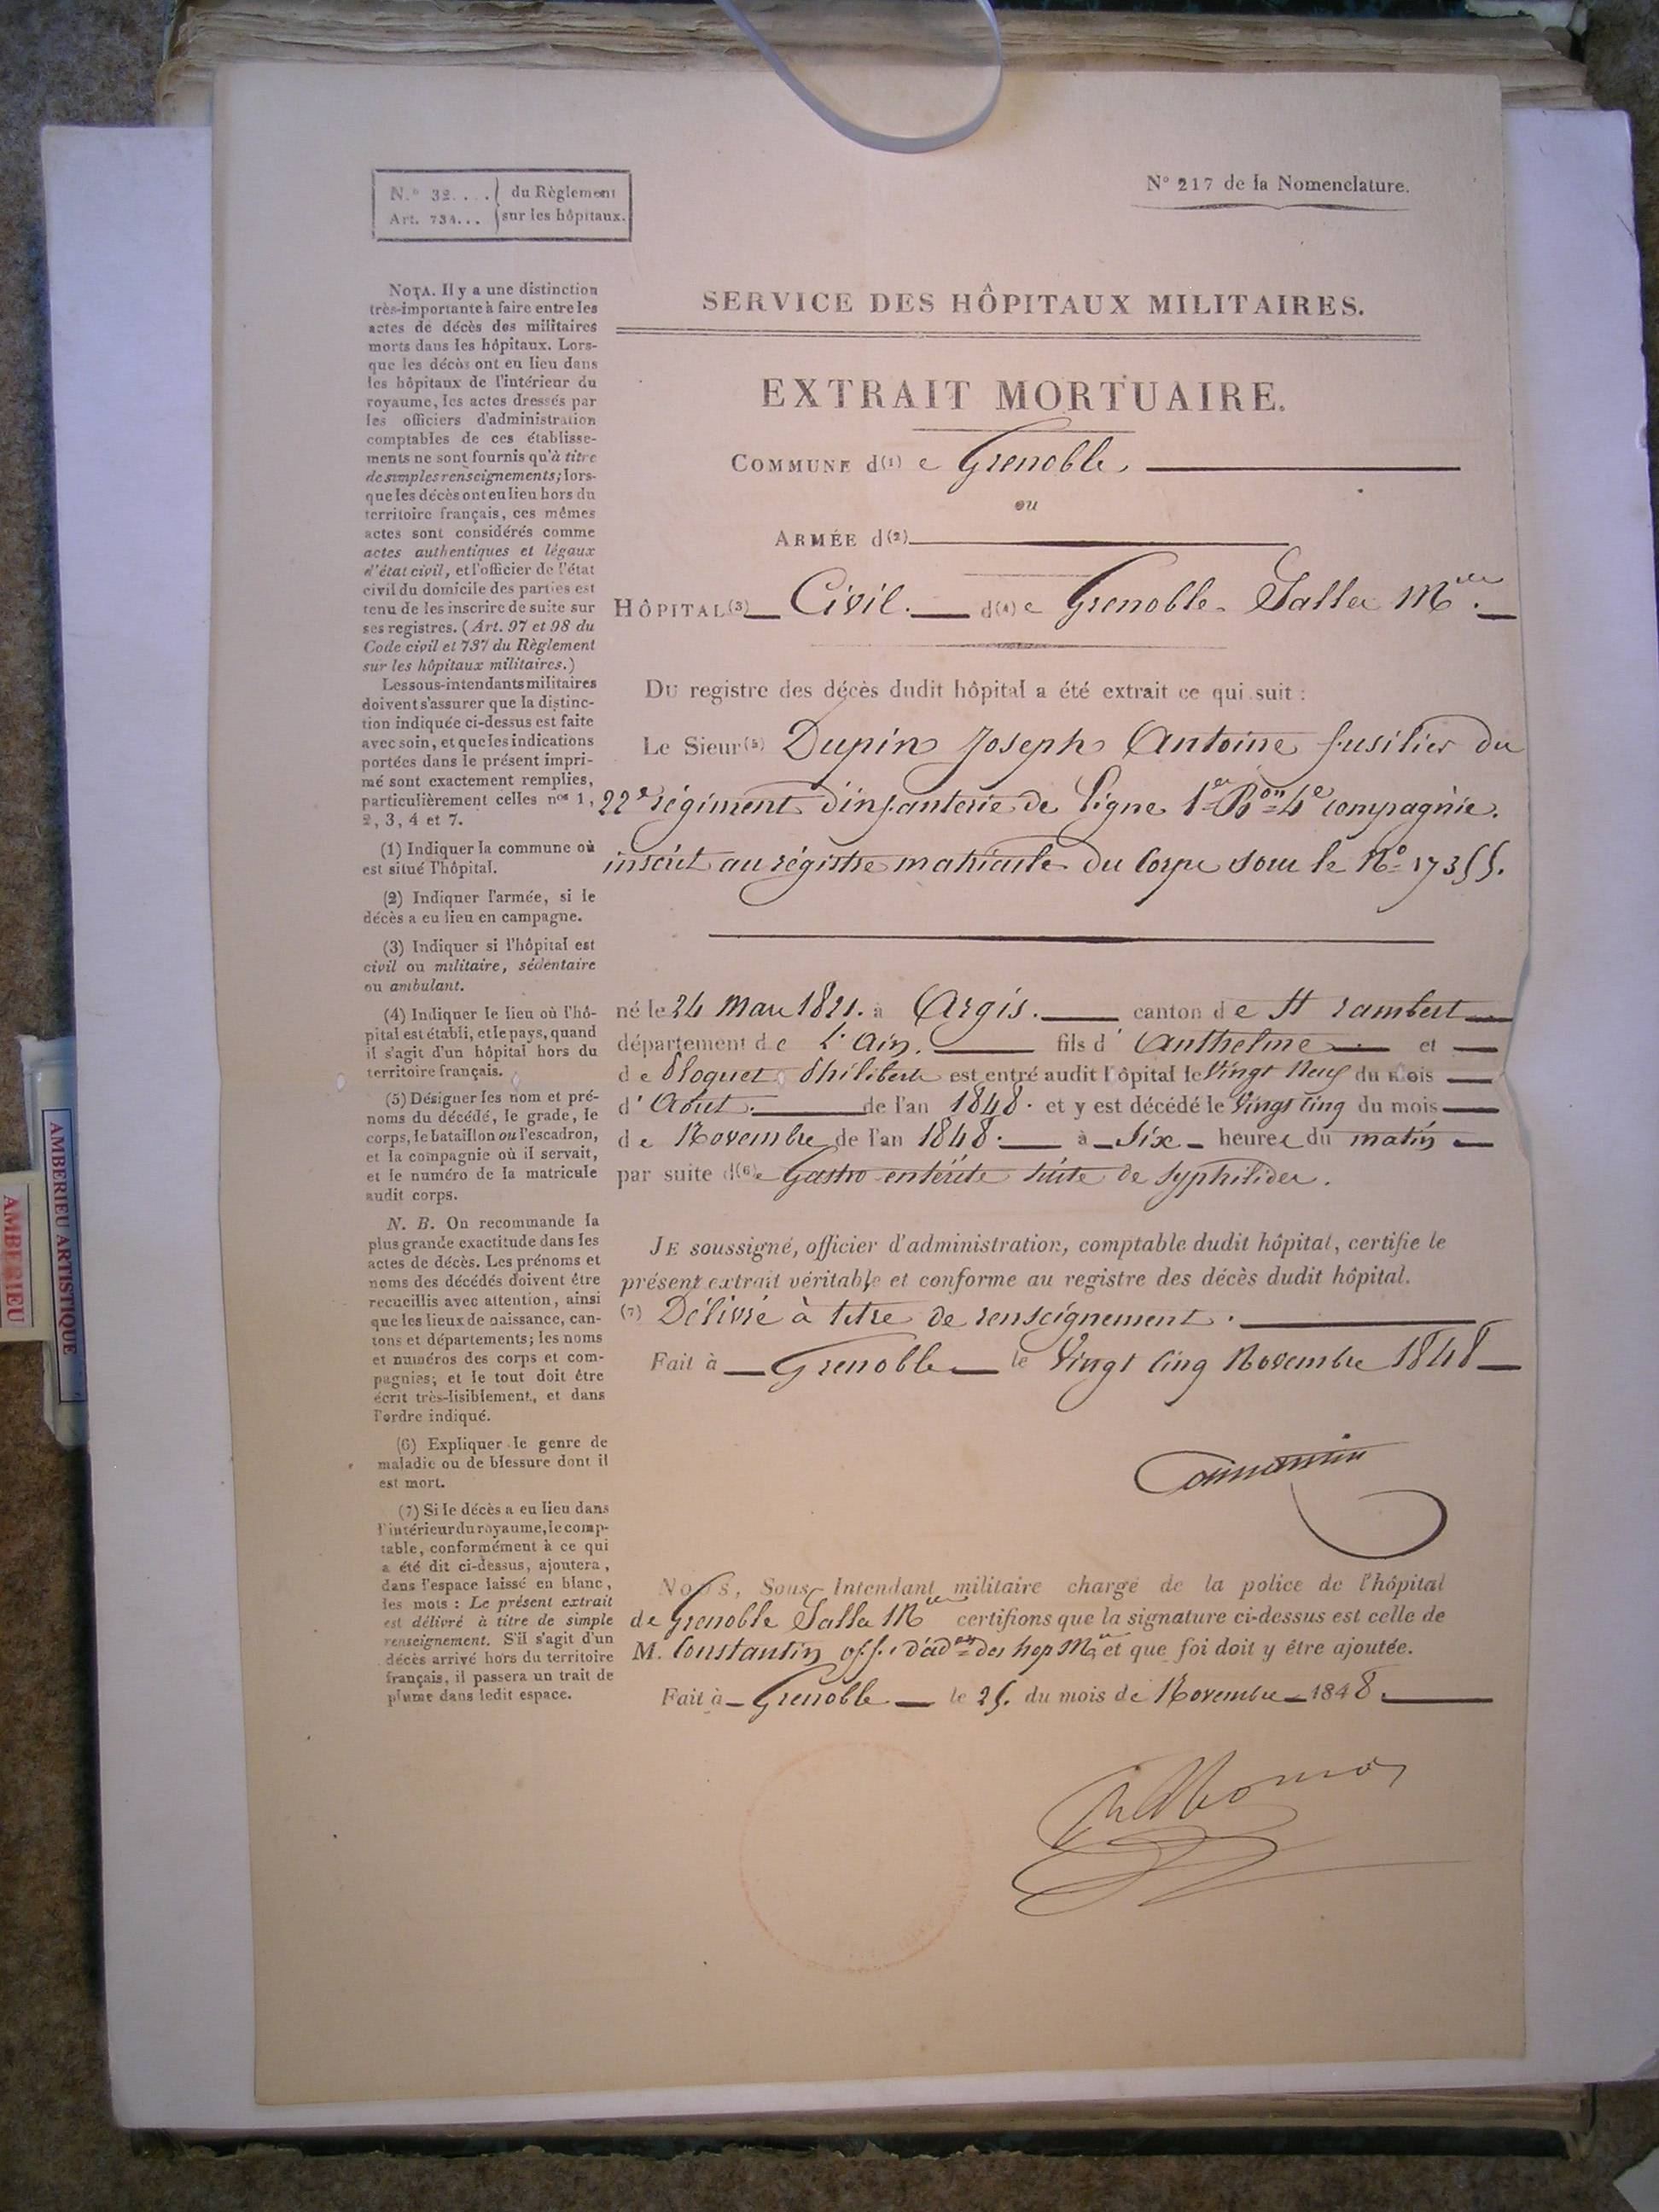 N.° 32. . . . du Règlement
Art. 734. . . sur les hôpitaux.
N° 217 de la Nomenclature.
NOTA. Il y a une distinction
très-importante à faire entre les
actes de décès des militaires
morts dans les hôpitaux. Lors-
que les décès ont eu lieu dans
les hôpitaux de l'intérieur du
royaume, les actes dressés par
les officiers d'administration
comptables de ces établisse-
ments ne sont fournis qu'à titre
de simples renseignements; lors-
que les décès ont eu lieu hors du
territoire français, ces mêmes
actes sont considérés comme
actes authentiques et légaux
d'état civil, et l'officier de l'état
civil du domicile des parties est
tenu de les inscrire de suite sur
ses registres. (Art. 97 et 98 du
Code civil et 737 du Règlement
sur les hôpitaux militaires.)
Les sous-intendants militaires
doivent s'assurer que la distinc-
tion indiquée ci-dessus est faite
avec soin, et que les indications
portées dans le présent impri-
mé sont exactement remplies,
particulièrement celles nos 1,
2, 3, 4 et 7.
(1) Indiquer la commune où
est situé l'hôpital.
(2) Indiquer l'armée, si le
décès a eu lieu en campagne.
(3) Indiquer si l'hôpital est
civil ou militaire, sédentaire
ou ambulant.
(4) Indiquer le lieu où l'hô-
pital est établi, et le pays, quand
il s'agit d'un hôpital hors du
territoire français.
(5) Désigner les nom et pré-
noms du décédé, le grade, le
corps, le bataillon ou l'escadron,
et la compagnie où il servait,
et le numéro de la matricule
audit corps.
N. B. On recommande la
plus grande exactitude dans les
actes de décès. Les prénoms et
noms des décédés doivent être
recueillis avec attention, ainsi
que les lieux de naissance, can-
tons et départements; les noms
et numéros des corps et com-
pagnies; et le tout doit être
écrit très-lisiblement, et dans
l'ordre indiqué.
(6) Expliquer le genre de
maladie ou de blessure dont il
est mort.
(7) Si le décès a eu lieu dans
l'intérieur du royaume, le comp-
table, conformément à ce qui
a été dit ci-dessus, ajoutera,
dans l'espace laissé en blanc,
les mots : Le présent extrait
est délivré à titre de simple
renseignement. S'il s'agit d'un
décès arrivé hors du territoire
français, il passera un trait de
plume dans ledit espace.
SERVICE DES HÔPITAUX MILITAIRES.
EXTRAIT MORTUAIRE.
COMMUNE d(1) e Grenoble.
ou
ARMÉE d(2)
HÔPITAL(3) Civil. d(4) e Grenoble Salles Mres.
DU registre des décès dudit hôpital a été extrait ce qui suit :
Le Sieur(5) Dupin Joseph Antoine fusilier du
22e régiment d'infanterie de ligne 1er Bon 4e compagnie.
inscrit au régistre matricule du Corps sous le No 17355.
né le 24 Mars 1821. à Argis. canton de St rambert
département de L'Ain. fils d' Anthelme et
de Ploquet Philiberte est entré audit hôpital le Vingt Neuf du mois
d' Août. de l'an 1848. et y est décédé le Vingt Cinq du mois
de Novembre de l'an 1848. à Six heures du matin
par suite d(6)e Gastro entérite suite de syphilides.
JE soussigné, officier d'administration, comptable dudit hôpital, certifie le
présent extrait véritable et conforme au registre des décès dudit hôpital.
(7) Délivré à titre de renseignement.
Fait à Grenoble le Vingt Cinq Novembre 1848
Constantin
NOUS, Sous-Intendant militaire chargé de la police de l'hôpital
de Grenoble Salles Mres certifions que la signature ci-dessus est celle de
M. Constantin off. d'adon des hop Mres et que foi doit y être ajoutée.
Fait à Grenoble le 25. du mois de Novembre 1848.
AMBERIEU ARTISTIQUE
AMBERIEU